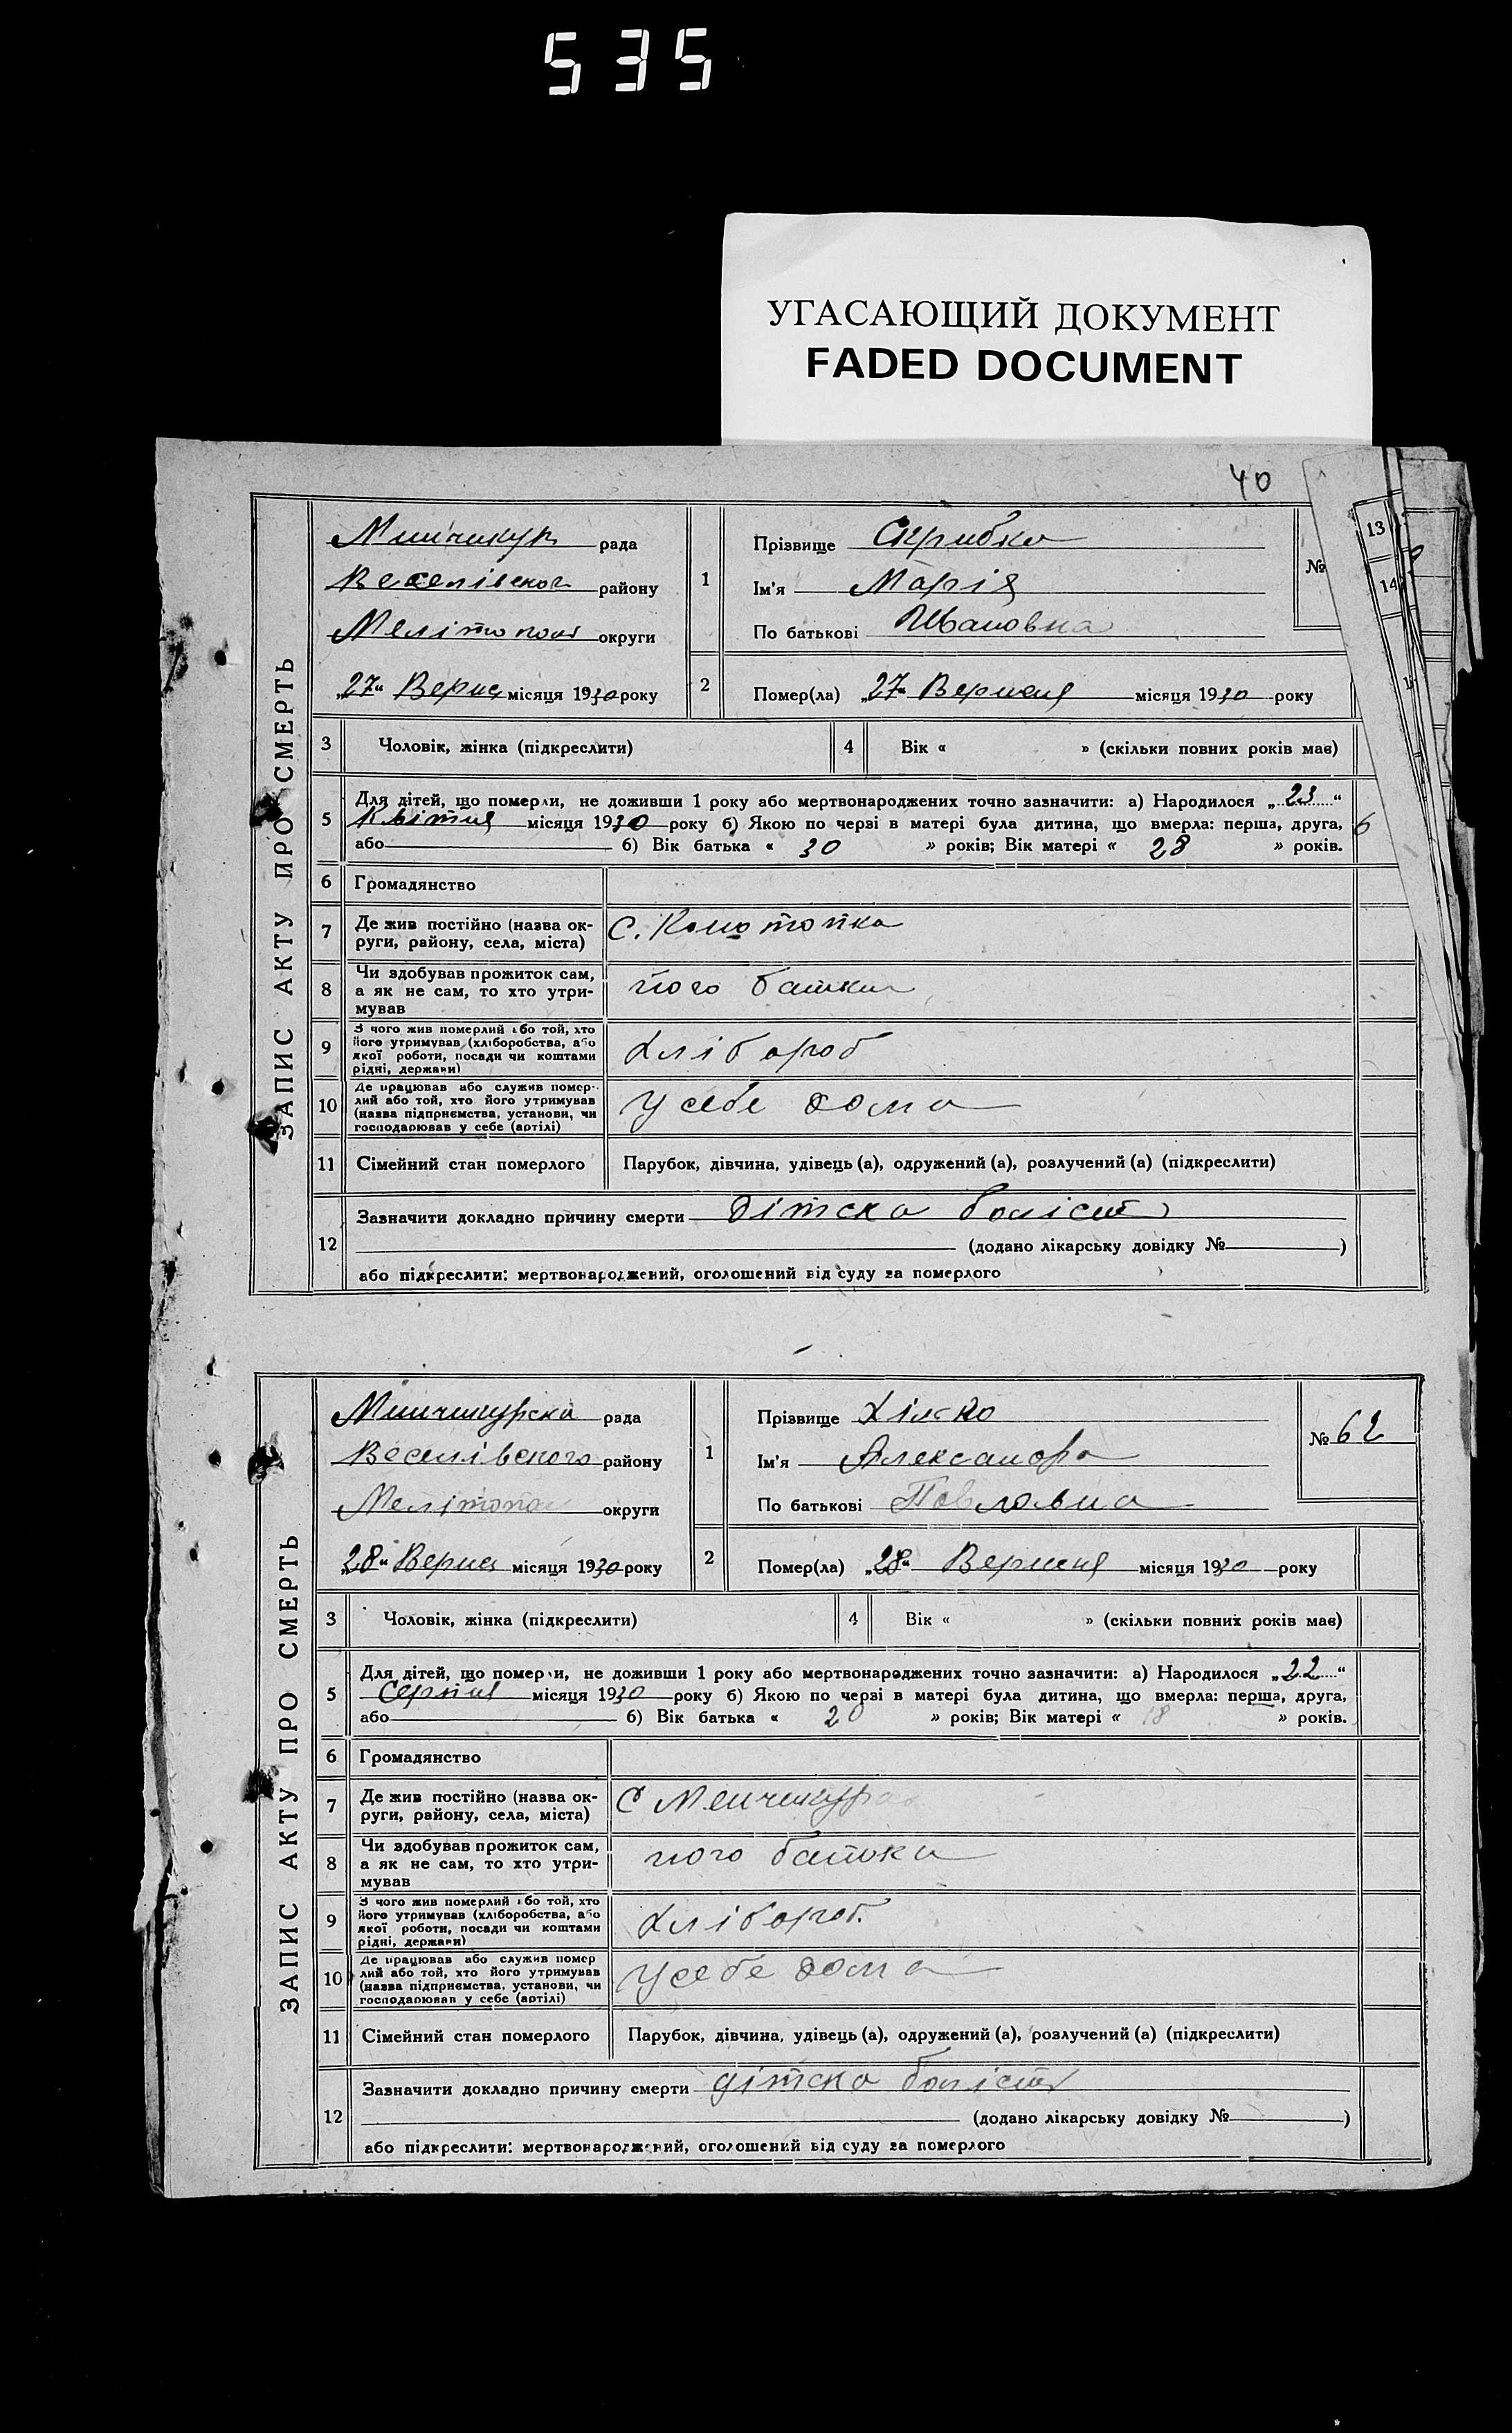 535
УГАСАЮЩИЙ ДОКУМЕНТ
FADED DOCUMENT
40
ЗАПИС АКТУ ПРО СМЕРТЬ
Минчикур рада
Веселівског району
Мелітопол округи
„27“ Верня місяця 1930 року
1
Прізвище Скрибка
Ім'я Марія
По батькові Ивановна
№
13
14
2
Помер(ла) „27“ Верненя місяця 1930 року
3 Чоловік, жінка (підкреслити) 4 Вік « » (скільки повних років має)
5 Для дітей, що померли, не доживши 1 року або мертвонароджених точно зазначити: а) Народилося „23“
Квітня місяця 1930 року б) Якою по черзі в матері була дитина, що вмерла: перша, друга, 6
або б) Вік батька « 30 » років; Вік матері « 28 » років.
6 Громадянство
7 Де жив постійно (назва округи, району, села, міста) С.
8 Чи здобував прожиток сам,
а як не сам, то хто утри-
мував
його батки
9 З чого жив померлий або той, хто
його утримував (хліборобства, або
якої роботи, посади чи коштами
рідні, держави)
Хлібороб
10 Де працював або служив помер-
лий або той, хто його утримував
(назва підприємства, установи, чи
господарював у себе (артілі)
У себе дома
11 Сімейний стан померлого Парубок, дівчина, удівець (а), одружений (а), розлучений (а) (підкреслити)
12 Зазначити докладно причину смерти дітска болість
(додано лікарську довідку № )
або підкреслити: мертвонароджений, оголошений від суду за померлого
ЗАПИС АКТУ ПРО СМЕРТЬ
Минчикурска рада
Веселівского району
Мелітопол округи
„28“ Верня місяця 1930 року
1
Прізвище Хілько
Ім'я Александра
По батькові Павловна
№ 62
2
Помер(ла) „28“ Верненя місяця 1930 року
3 Чоловік, жінка (підкреслити) 4 Вік « » (скільки повних років має)
5 Для дітей, що померли, не доживши 1 року або мертвонароджених точно зазначити: а) Народилося „22“
Серпня місяця 1930 року б) Якою по черзі в матері була дитина, що вмерла: перша, друга,
або б) Вік батька « 20 » років; Вік матері « 18 » років.
6 Громадянство
7 Де жив постійно (назва ок-
руги, району, села, міста)
С Менчикура
8 Чи здобував прожиток сам,
а як не сам, то хто утри-
мував
його батьки
9 З чого жив померлий або той, хто
його утримував (хліборобства, або
якої роботи, посади чи коштами
рідні, держави)
Хлібороб.
10 Де працював або служив помер
лий або той, хто його утримував
(назва підприємства, установи, чи
господарював у себе (артілі)
У себе дома
11 Сімейний стан померлого Парубок, дівчина, удівець (а), одружений (а), розлучений (а) (підкреслити)
12 Зазначити докладно причину смерти дітска болість
(додано лікарську довідку № )
або підкреслити: мертвонароджений, оголошений від суду за померлого